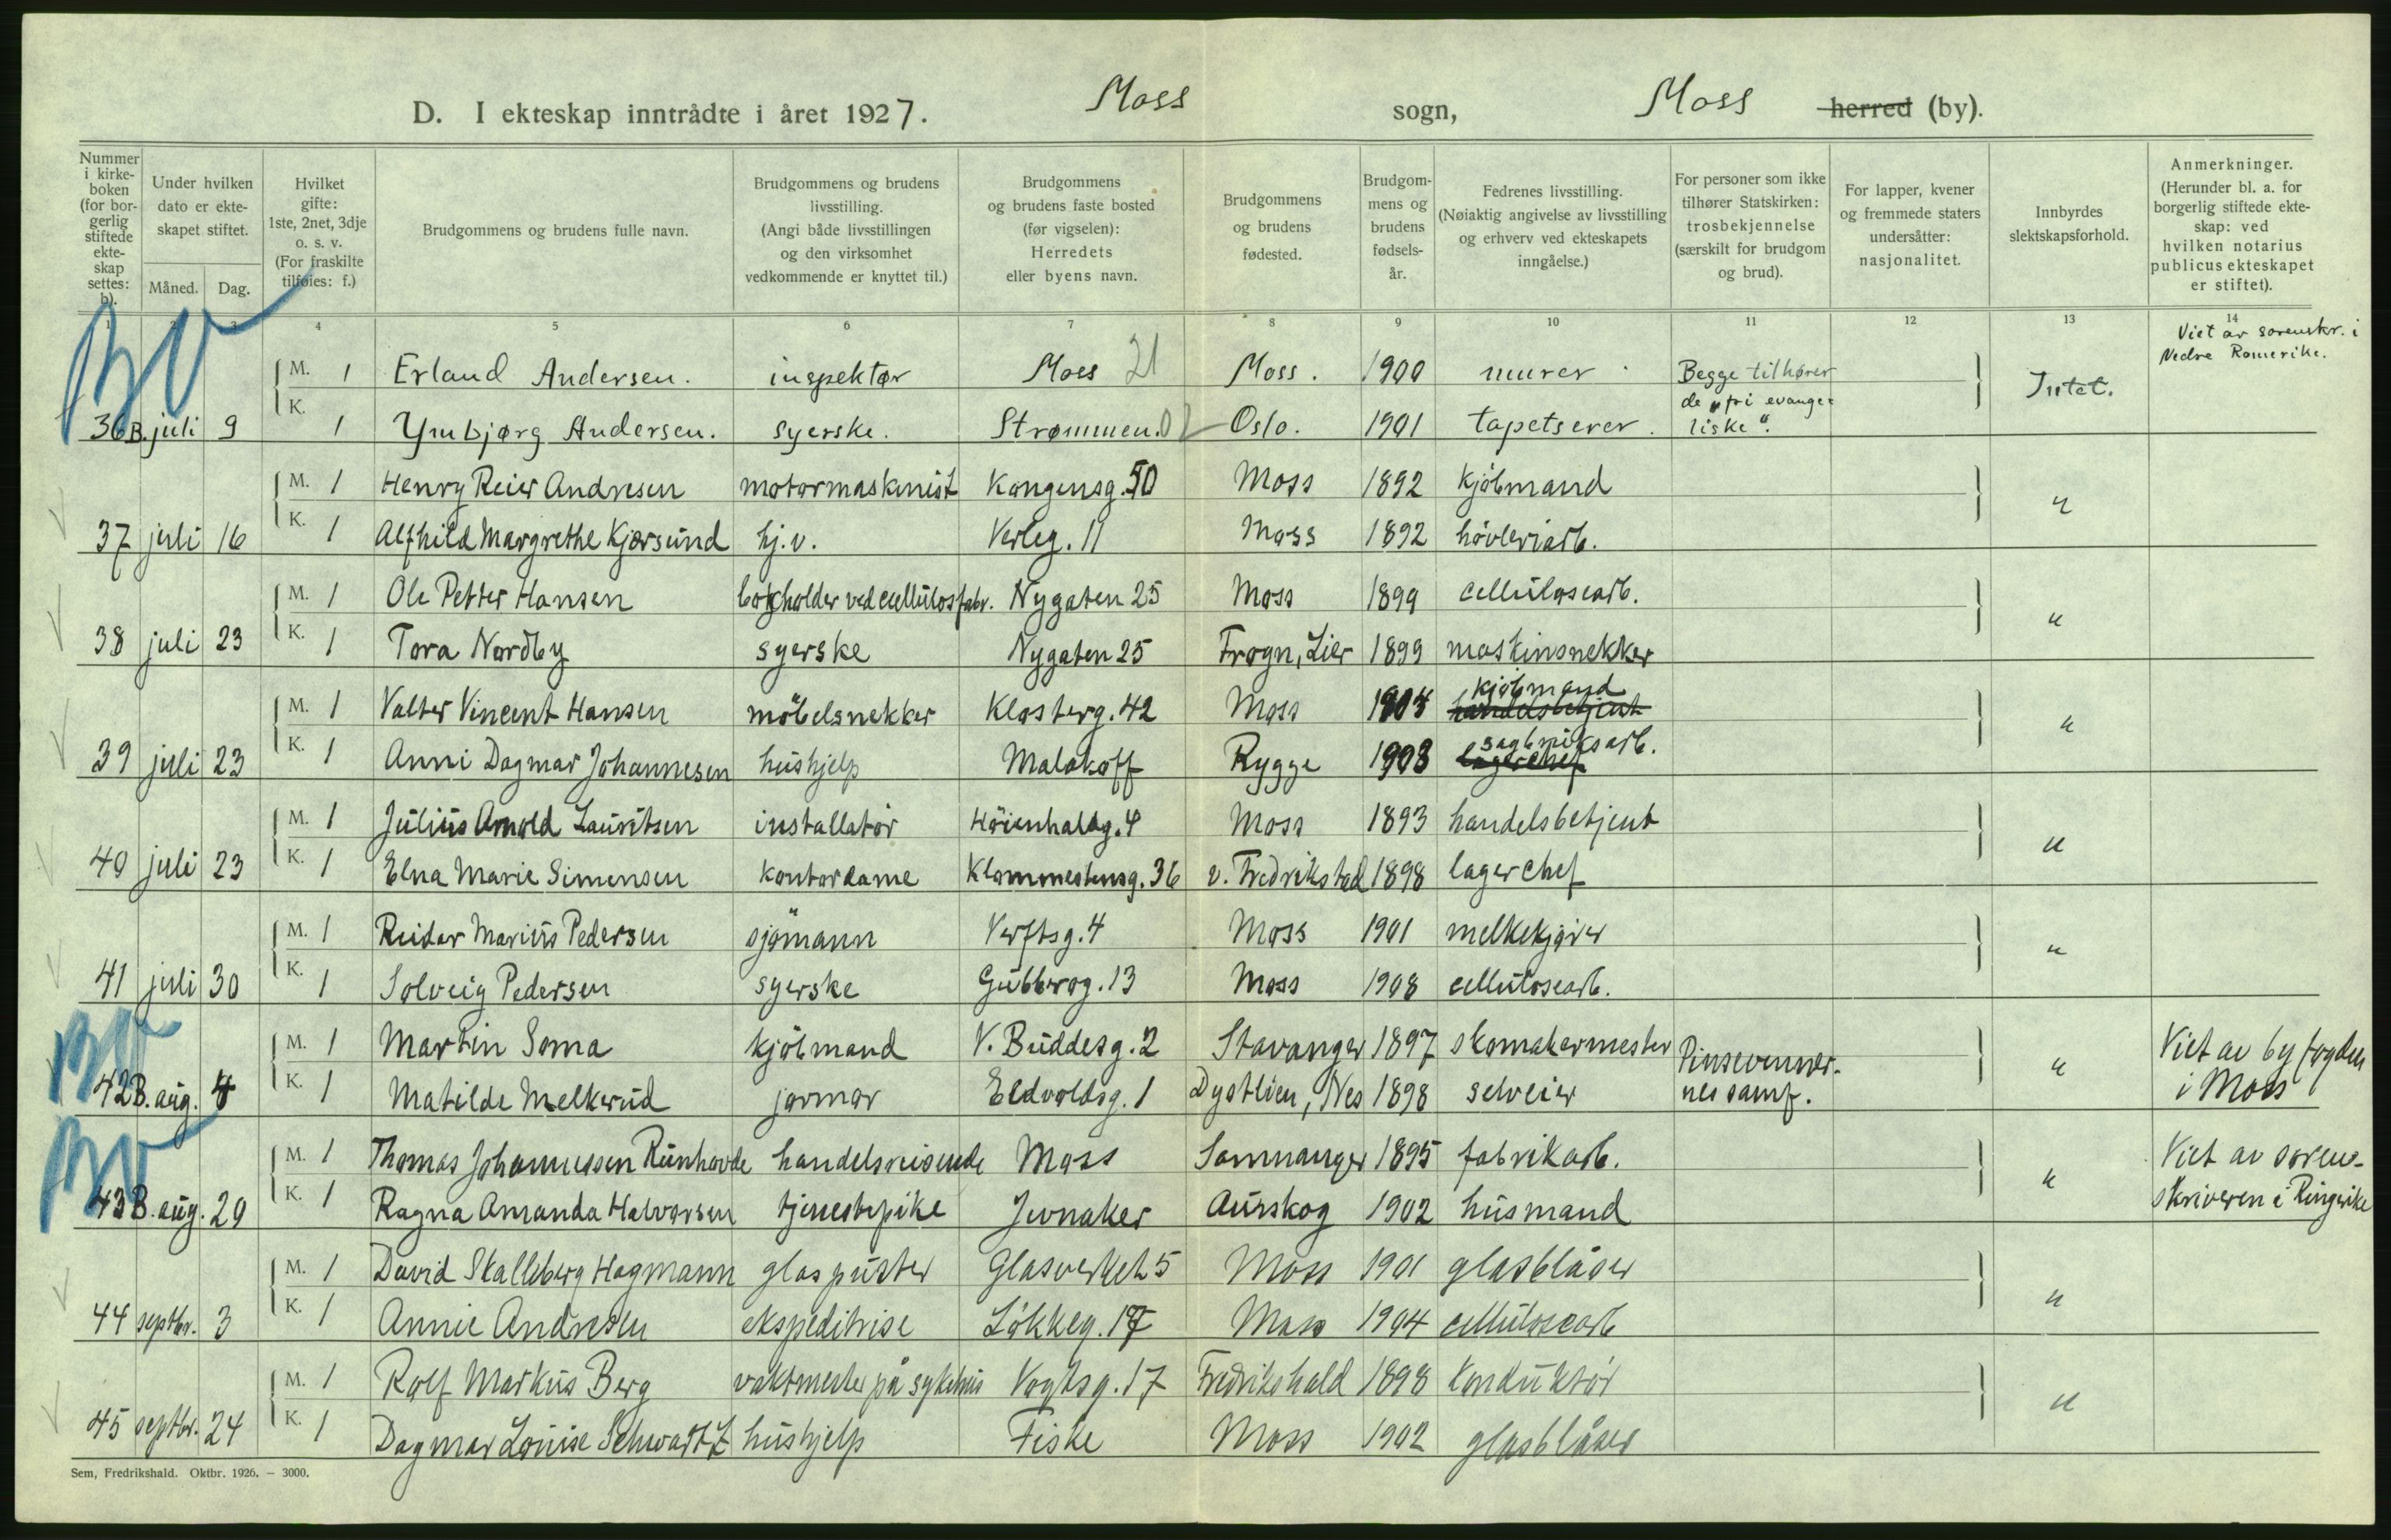 Moss Moss
D. I ekteskap inntrådte i året 1927. sogn, herred (by).
Nummer i kirkeboken (for borgerlig stiftede ekteskap settes: b).
Under hvilken dato er ekteskapet stiftet.
Måned. Dag.
Hvilket gifte: 1ste, 2net, 3dje o. s. v. (For fraskilte tilføies: f.)
Brudgommens og brudens fulle navn.
Brudgommens og brudens livsstilling. (Angi både livsstillingen og den virksomhet vedkommende er knyttet til.)
Brudgommens og brudens faste bosted (før vigselen): Herredets eller byens navn.
Brudgommens og brudens fødested.
Brudgommens og brudens fødselsår.
Fedrenes livsstilling. (Nøiaktig angivelse av livsstilling og erhverv ved ekteskapets inngåelse.)
For personer som ikke tilhører Statskirken: trosbekjennelse (særskilt for brudgom og brud).
For lapper, kvener og fremmede staters undersåtter: nasjonalitet.
Innbyrdes slektskapsforhold.
Anmerkninger. (Herunder bl. a. for borgerlig stiftede ekteskap: ved hvilken notarius publicus ekteskapet er stiftet).
1 2 3 4 5 6 7 8 9 10 11 12 13 14
BV
M. 1 Erland Andersen. inspektør Moss 21 Moss. 1900 murer Begge tilhører Intet. Viet av sorenskr. i Nedre Romerike.
36 B. juli 9 K. 1 Ynbjørg Andersen. syerske. Strømmen. 02 Oslo. 1901 tapetserer. de "fri evangeliske".
M. 1 Henry Reier Andresen motormaskinist Kongensg. 50 Moss 1892 kjöbmand "
37 juli 16 K. 1 Alfhild Margrethe Kjærsund hj.v. Verleg. 11 Moss 1892 hövleriarb.
M. 1 Ole Petter Hansen bokholder ved cellulosfabr. Nygaten 25 Moss 1899 cellulosearb. "
38 juli 23 K. 1 Tora Nordby syerske Nygaten 25 Frogn, Lier 1899 maskinsnekker
M. 1 Valter Vincent Hansen möbelsnekker Klosterg. 42 Moss 1904 handelsbetjent kjöbmand "
39 juli 23 K. 1 Anni Dagmar Johannesen hushjelp Malakoff Rygge 1903 lagerchef sagbruksarb.
M. 1 Julius Arnold Lauritsen installatör Höienhaldg. 4 Moss 1893 handelsbetjent "
40 juli 23 K. 1 Elna Marie Simensen kontordame Klommestensg. 36 v. Fredrikstad 1898 lagerchef
M. 1 Reidar Marius Pedersen sjömann Verftsg. 4 Moss 1901 melkekjører "
41 juli 30 K. 1 Solveig Pedersen syerske Gubberog. 13 Moss 1908 cellulosearb.
BV
M. 1 Martin Soma kjöbmand V. Buddesg. 2 Stavanger 1897 skomakermester Pinsevenner- " Viet av byfogden
42 B. aug. 4 K. 1 Matilde Melkerud jormor Eldvoldsg. 1 Dystlien, Nes 1898 selveier nes samf. i Moss
BV
M. 1 Thomas Johannessen Runhovde handelsreisende Moss Samnanger 1895 fabrikarb. " Viet av soren-
43 B. aug. 29 K. 1 Ragna Amanda Halvorsen tjenestepike Jevnaker Aurskog 1902 husmand skriveren i Ringerike
M. 1 David Skalleberg Hagmann glaspuster Glasverket 5 Moss 1901 glasblåser "
44 septbr. 3 K. 1 Annie Andresen ekspeditrise Lökkeg. 17 Moss 1904 cellulosearb
M. 1 Rolf Markus Berg vaktmester på sykehus Vogtsg. 17 Fredrikshald 1898 konduktör "
45 septbr. 24 K. 1 Dagmar Louise Schwartz hushjelp Fiske Moss 1902 glasblåser
Sem, Fredrikshald. Oktbr. 1926. – 3000.